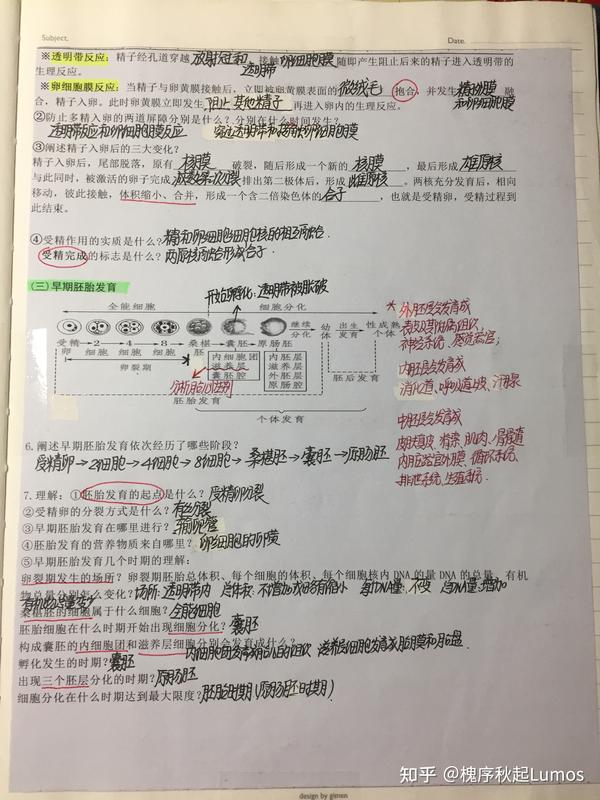 Subject.
Date.
※透明带反应：精子经孔道穿越放射冠和透明带接触卵细胞膜随即产生阻止后来的精子进入透明带的
生理反应。
※卵细胞膜反应：当精子与卵黄膜接触后，立即被卵黄膜表面的微绒毛抱合，并发生精细胞膜和卵细胞膜融
合，精子入卵。此时卵黄膜立即发生阻止其他精子再进入卵内的生理反应。
②防止多精入卵的两道屏障分别是什么？分别在什么时间发生？
透明带反应和卵细胞膜反应
③阐述精子入卵后的三大变化？
精子入卵后，尾部脱落，原有核膜破裂，随后形成一个新的核膜，最后形成雄原核
与此同时，被激活的卵子完成减数第二次分裂排出第二极体后，形成雌原核。两核充分发育后，相向
移动，彼此接触，体积缩小、合并，形成一个含二倍染色体的合子，也就是受精卵，受精过程到
此结束。
④受精作用的实质是什么？精和卵细胞细胞核的相互融合.
受精完成的标志是什么？两原核融合形成合子.
(三)早期胚胎发育
开始孵化:透明带被胀破
全能细胞 细胞分化
受精卵 2细胞 4细胞 8细胞 桑椹胚 囊胚 原肠胚 继续分化 幼体 出生 发育 性成熟个体
卵裂期
内细胞团 滋养层 囊胚腔
内胚层 滋养层 外胚层 原肠腔
胚胎发育 胚后发育
个体发育
* 外胚层会发育成
神经系统、感觉器官;
内胚层会发育成
消化道、呼吸道上皮、汗腺
中胚层会发育成
皮肤真皮、骨骼肌
内脏器官外膜、循环系统、
排泄系统.生殖系统.
6.阐述早期胚胎发育依次经历了哪些阶段？
受精卵→2细胞→4细胞→8细胞→桑椹胚→囊胚→原肠胚
7.理解：①胚胎发育的起点是什么？受精卵分裂
②受精卵的分裂方式是什么？有丝分裂
③早期胚胎发育在哪里进行？输卵管
④胚胎发育的营养物质来自哪里？卵细胞的卵黄
⑤早期胚胎发育几个时期的理解：
卵裂期发生的场所？卵裂期胚胎总体积、每个细胞的体积、每个细胞核内DNA的量DNA的总量、有机
物总量分别怎么变化？场所:透明带内 总体积:不增加或略有缩小 每个DNA量:不变 总DNA量:增加
有机物总量变少
桑椹胚的细胞属于什么细胞？全能细胞
胚胎细胞在什么时期开始出现细胞分化？囊胚
构成囊胚的内细胞团和滋养层细胞分别会发育成什么？内细胞团发育成胎儿的各种组织 滋养层细胞发育成胎膜和胎盘.
孵化发生的时期？囊胚
出现三个胚层分化的时期？原肠胚
细胞分化在什么时期达到最大限度？胚胎时期(原肠胚时期)
知乎 @槐序秋起Lumos
design by gimen